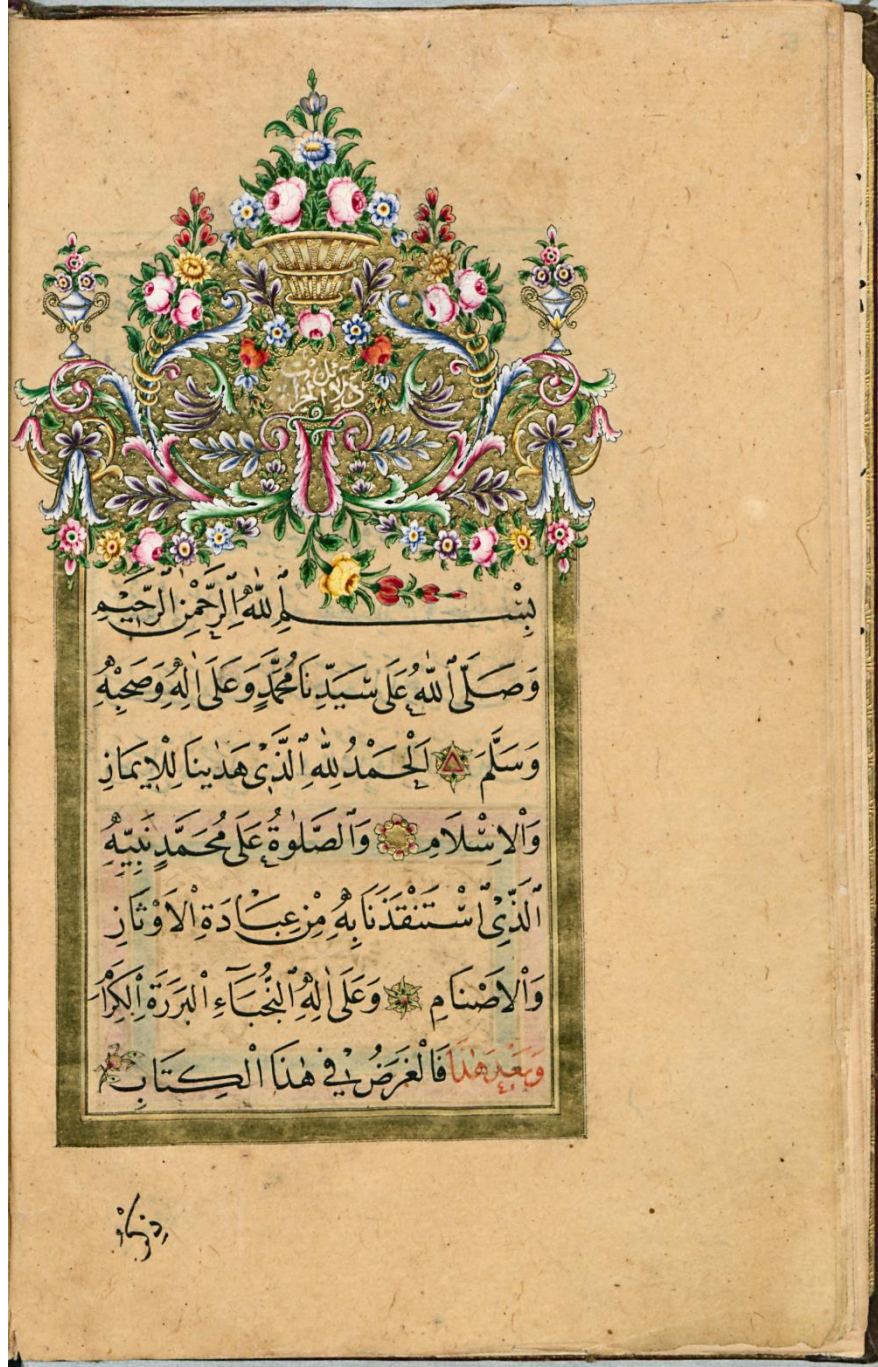 دلائل الخيرات
بِسْمِ اللّٰهِ الرَّحْمٰنِ الرَّحِيْمِ
وَصَلَّى اللّٰهُ عَلٰى سَيِّدِنَا مُحَمَّدٍ وَعَلٰى اٰلِهٖ وَصَحْبِهٖ
وَسَلَّمَ اَلْحَمْدُ لِلّٰهِ الَّذِيْ هَدٰينَا لِلْاِيمَانِ
وَالْاِسْلَامِ وَالصَّلٰوةُ عَلٰى مُحَمَّدٍ نَبِيِّهٖ
الَّذِيْ اسْتَنْقَذَنَا بِهٖ مِنْ عِبَادَةِ الْاَوْثَانِ
وَالْاَصْنَامِ وَعَلٰى اٰلِهٖ النُّجَبَآءِ الْبَرَرَةِ الْكِرَامِ
وَبَعْدَ هٰذَا فَالْغَرَضُ فِيْ هٰذَا الْكِتَابِ
ذِكْرُ